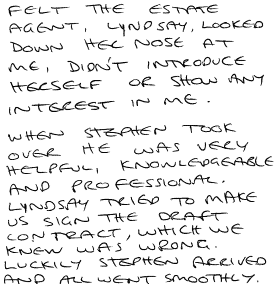 FELT THE ESTATE
AGENT, LYNDSAY, LOOKED
DOWN HER NOSE AT
ME, DIDN'T INTRODUCE
HERSELF OR SHOW ANY
INTEREST IN ME.
WHEN STEPHEN TOOK
OVER HE WAS VERY
HELPFUL, KNOWLEDGEABLE
AND PROFESSIONAL.
LYNDSAY TRIED TO MAKE
US SIGN THE DRAFT
CONTRACT, WHICH WE
KNEW WAS WRONG.
LUCKILY STEPHEN ARRIVED
AND ALL WENT SMOOTHLY.